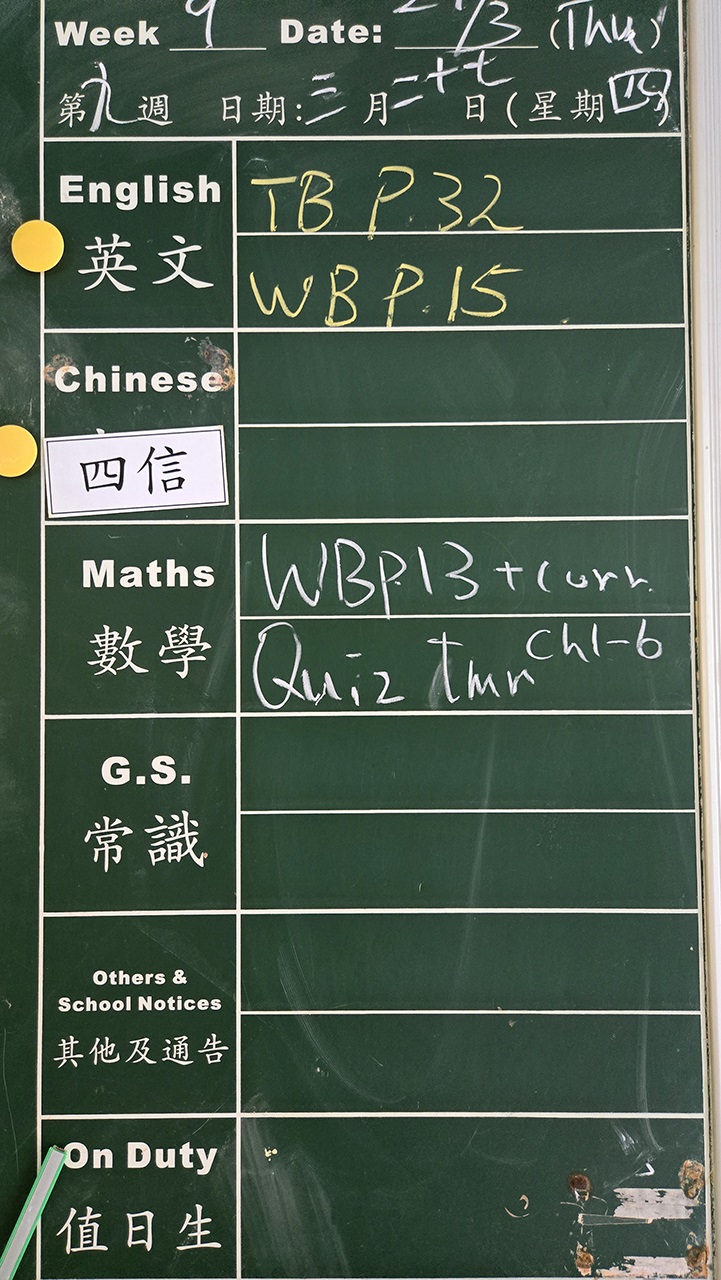 Week 9 Date: 27/3 (Thu)
第九週 日期:三月二十七日(星期四)
English
英文
TB P.32
WB P.15
Chinese
四信
Maths
數學
WBP.13 + corr.
Quiz tmr Ch1-6
G.S.
常識
Others &
School Notices
其他及通告
On Duty
值日生